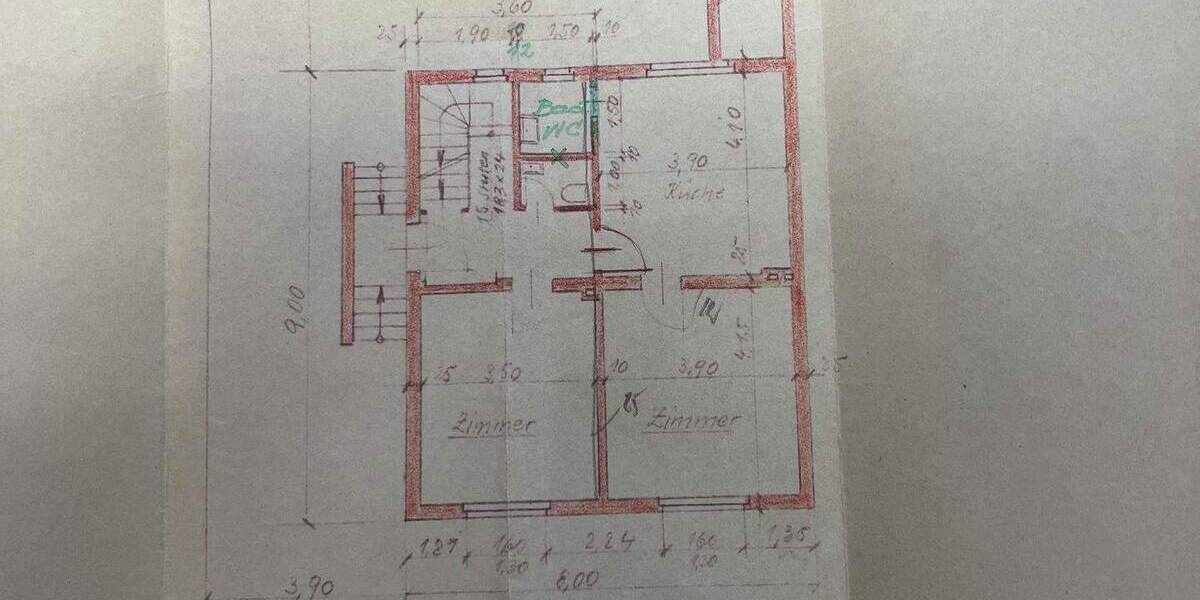 3,60
25 1,90 10 1,50 10
12
Bad
WC
1,50
4.10
10
3,90
1,00
Küche
15 Stufen
18,7 x 24
10
25
9,00
4.15
25 3,50 10 3,90 25
25
Zimmer Zimmer
1,27 160 2,24 160 1,35
1,30 1,30
3,90 8,00